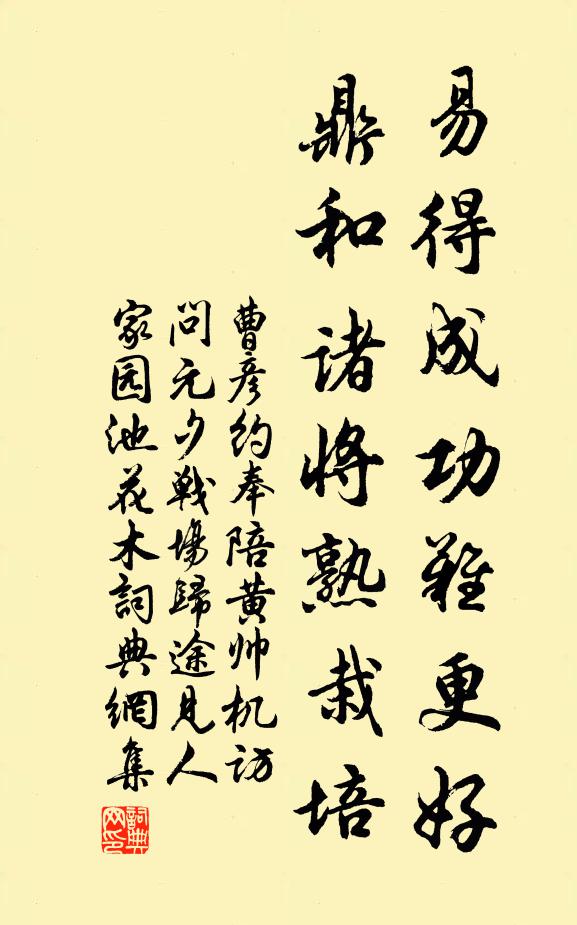 易得成功難更好
鼎和诸將熟栽培
曹彦约奉陪黄帅机访
问元夕戰場歸途见人
家园池花木詞典網集
詞典網印